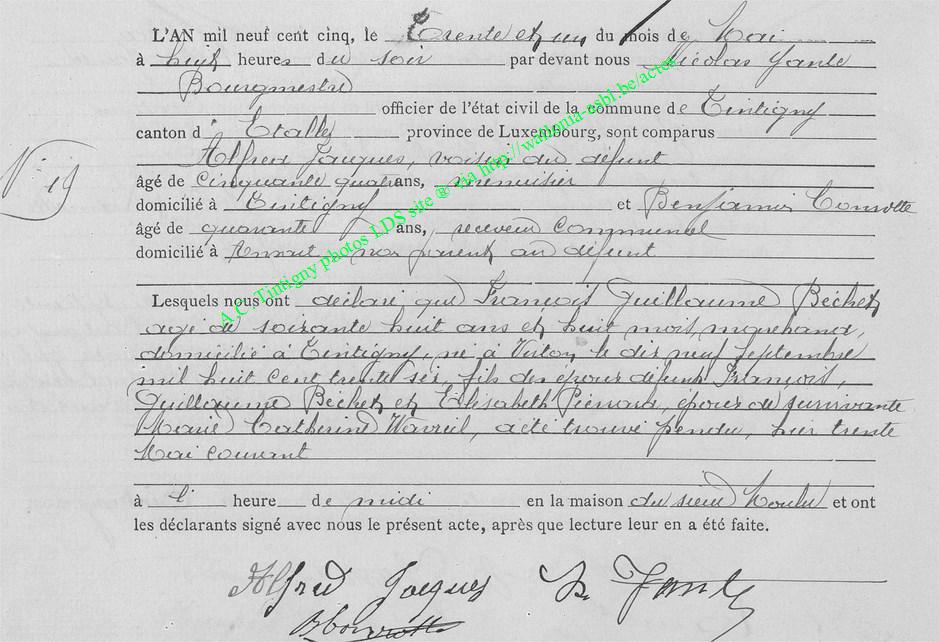 L'AN mil neuf cent cinq, le Trente et un du mois de Mai
à huit heures du soir par devant nous Nicolas Jante
Bourgmestre
officier de l'état civil de la commune de Tintigny
canton d' Etalle province de Luxembourg, sont comparus
Alfred Jacques, voisin du défunt
N° 19
âgé de Cinquante quatre ans, menuisier
domicilié à Tintigny et Benjamin
âgé de quarante ans, receveur Communal
domicilié à Ansart non parent au défunt
Lesquels nous ont déclaré que François Guillaume Béchet
agé de soixante huit ans et huit mois,
domicilié à Tintigny, né à Virton le dix neuf Septembre
mil huit cent trente six, fils des époux défunts François,
Guillaume Béchet et Elisabeth époux de survivante
Marie Catherine Wavreil, a été trouvé pendu, hier trente
Mai courant
à l' heure de midi en la maison du sieur et ont
les déclarants signé avec nous le présent acte, après que lecture leur en a été faite.
Alfred Jacques N. Jante
A.C. Tintigny photos LDS site @ via http://wallonia-asbl.be/actes